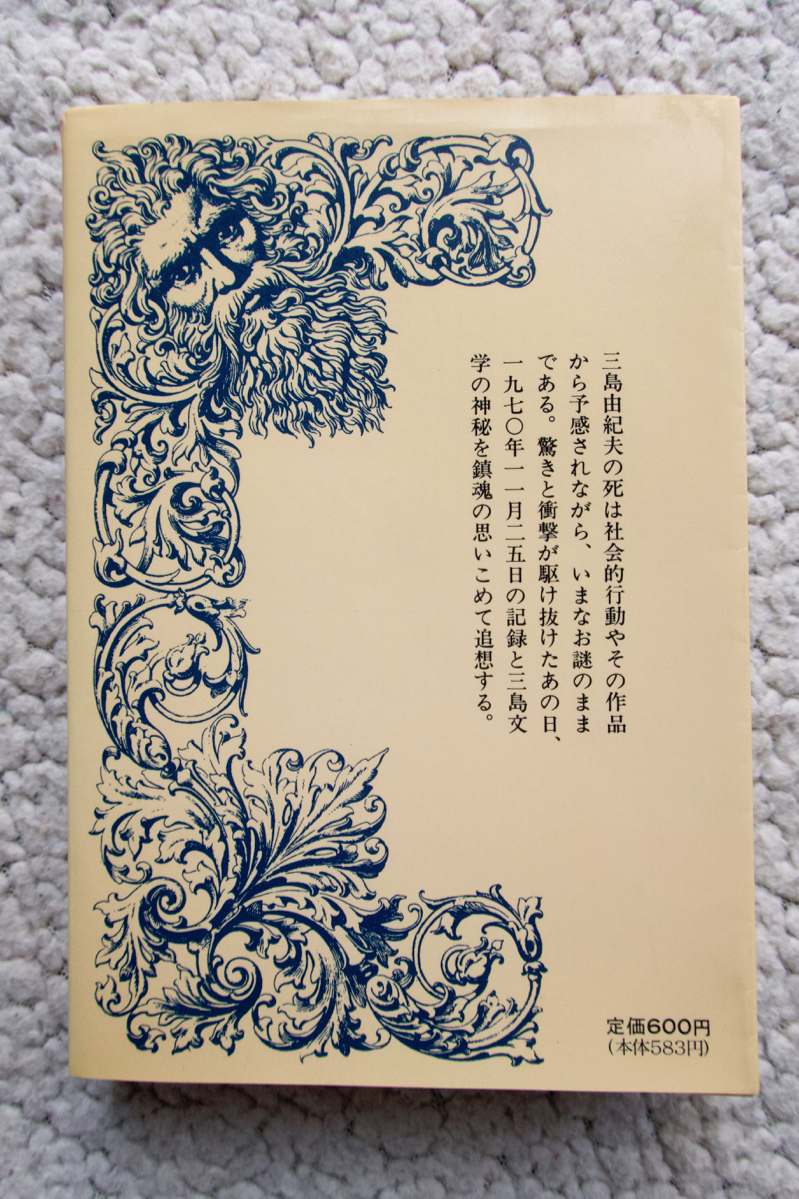 三島由紀夫の死は社会的行動やその作品
から予感されながら、いまなお謎のまま
である。驚きと衝撃が駆け抜けたあの日、
一九七〇年一一月二五日の記録と三島文
学の神秘を鎮魂の思いこめて追想する。
定価600円
(本体583円)